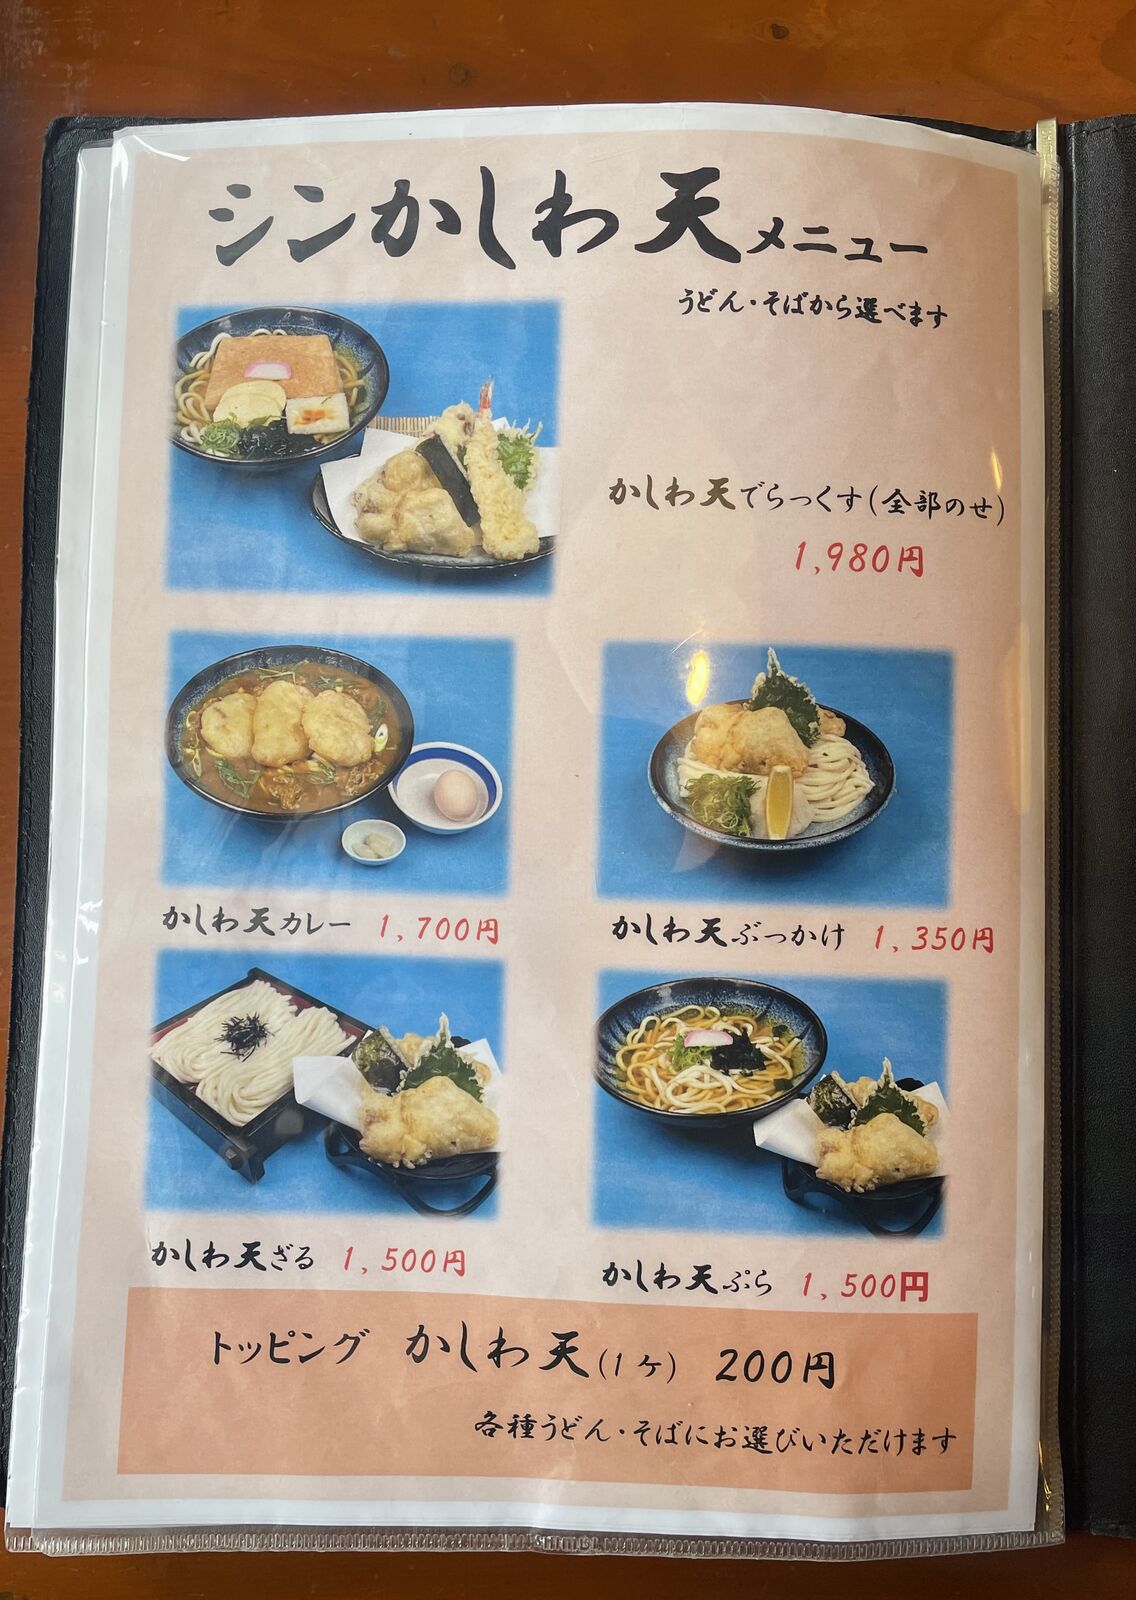 シンかしわ天メニュー
うどん・そばから選べます
かしわ天でらっくす(全部のせ)
1,980円
かしわ天カレー 1,700円
かしわ天ぶっかけ 1,350円
かしわ天ざる 1,500円
かしわ天ぷら 1,500円
トッピング かしわ天(1ヶ) 200円
各種うどん・そばにお選びいただけます